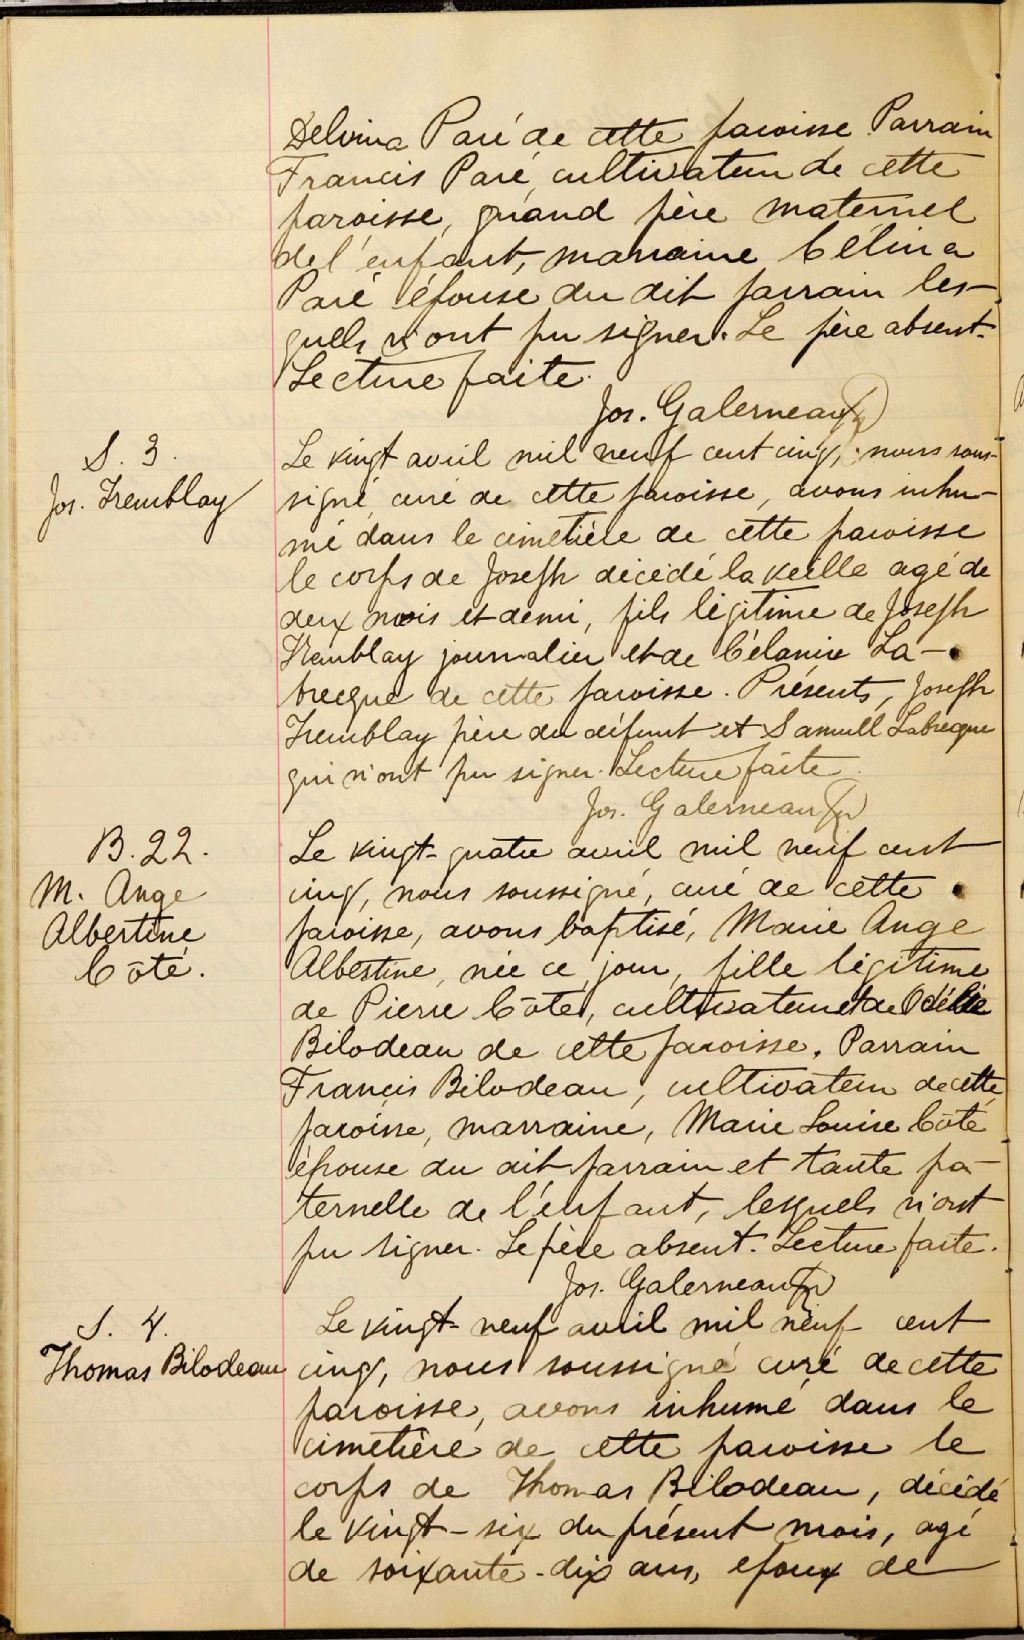 Delvina Paré de cette paroisse. Parrain
Francis Paré, cultivateur de cette
paroisse, grand père maternel
de l'enfant, marraine Célina
Paré épouse du dit parrain les-
quels n'ont pu signer. Le père absent.
Lecture faite.
Jos. Galerneau ptr
S. 3.
Jos. Tremblay
Le vingt avril mil neuf cent cinq, nous sous-
signé, curé de cette paroisse, avons inhu-
mé dans le cimetière de cette paroisse
le corps de Joseph décédé la veille agé de
deux mois et demi, fils légitime de Joseph
Tremblay journalier et de Célanire La-
brecque de cette paroisse. Présents, Joseph
Tremblay père du défunt et Samuell Labrecque
qui n'ont pu signer. Lecture faite.
Jos. Galerneau ptr
B. 22.
M. Ange
Albertine
Côté.
Le vingt-quatre avril mil neuf cent
cinq, nous soussigné, curé de cette
paroisse, avons baptisé, Marie Ange
Albertine, née ce jour, fille légitime
de Pierre Côté, cultivateur et de Odélie
Bilodeau de cette paroisse. Parrain
Francis Bilodeau, cultivateur de cette
paroisse, marraine, Marie Louise Côté
épouse du dit parrain et tante pa-
ternelle de l'enfant, lesquels n'ont
pu signer. Le père absent. Lecture faite.
Jos. Galerneau ptr
S. 4.
Thomas Bilodeau
Le vingt-neuf avril mil neuf cent
cinq, nous soussigné curé de cette
paroisse, avons inhumé dans le
cimetière de cette paroisse le
corps de Thomas Bilodeau, décédé
le vingt-six du présent mois, agé
de soixante-dix ans, epoux de